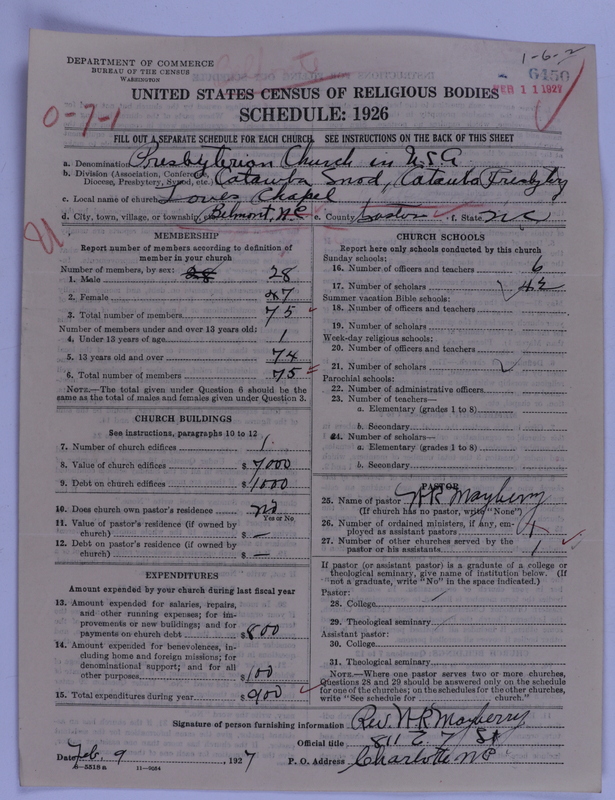 DEPARTMENT OF COMMERCE
BUREAU OF THE CENSUS
WASHINGTON
1-6-2
6450
FEB 11 1927
UNITED STATES CENSUS OF RELIGIOUS BODIES
SCHEDULE: 1926
0-7-1
FILL OUT A SEPARATE SCHEDULE FOR EACH CHURCH. SEE INSTRUCTIONS ON THE BACK OF THIS SHEET
a. Denomination Presbyterian Church in U.S.A
b. Division (Association, Conference, Diocese, Presbytery, Synod, etc.) Catawba Snod, Catauba Presbytery
c. Local name of church Loves Chapel
d. City, town, village, or township Belmont, N.C. e. County Gaston f. State N C
MEMBERSHIP
Report number of members according to definition of
member in your church
Number of members, by sex: 28
1. Male 28
2. Female 47
3. Total number of members 75
Number of members under and over 13 years old:
4. Under 13 years of age 1
5. 13 years old and over 74
6. Total number of members 75
NOTE.—The total given under Question 6 should be
same as the total of males and females given under Question 3.
CHURCH BUILDINGS
See instructions, paragraphs 10 to 12
7. Number of church edifices 1
8. Value of church edifices $ 7000
9. Debt on church edifices $ 1000
10. Does church own pastor's residence no
Yes or No
11. Value of pastor's residence (if owned by
church) $ —
12. Debt on pastor's residence (if owned by
church) $ —
EXPENDITURES
Amount expended by your church during last fiscal year
13. Amount expended for salaries, repairs,
and other running expenses; for im-
provements or new buildings; and for
payments on church debt $ 800
14. Amount expended for benevolences, in-
cluding home and foreign missions; for
denominational support; and for all
other purposes $ 100
15. Total expenditures during year $ 900
CHURCH SCHOOLS
Report here only schools conducted by this church
Sunday schools:
16. Number of officers and teachers 6
17. Number of scholars 42
Summer vacation Bible schools:
18. Number of officers and teachers
19. Number of scholars
Week-day religious schools:
20. Number of officers and teachers
21. Number of scholars
Parochial schools:
22. Number of administrative officers
23. Number of teachers—
a. Elementary (grades 1 to 8)
b. Secondary
24. Number of scholars—
a. Elementary (grades 1 to 8)
b. Secondary
PASTOR
25. Name of pastor H R Mayberry
(If church has no pastor, write "None")
26. Number of ordained ministers, if any, em-
ployed as assistant pastors
27. Number of other churches served by the
pastor or his assistants 1
If pastor (or assistant pastor) is a graduate of a college or
theological seminary, give name of institution below. (If
not a graduate, write "No" in the space indicated.)
Pastor:
28. College
29. Theological seminary
Assistant pastor:
30. College
31. Theological seminary
NOTE.—Where one pastor serves two or more churches,
Questions 28 and 29 should be answered only on the schedule
for one of the churches; on the schedules for the other churches,
write "See schedule for church."
Signature of person furnishing information Rev. H R Mayberry
Official title 811 E 7 St
Date Feb. 9, 1927 P. O. Address Charlotte N C
8—5518 a 11—9084